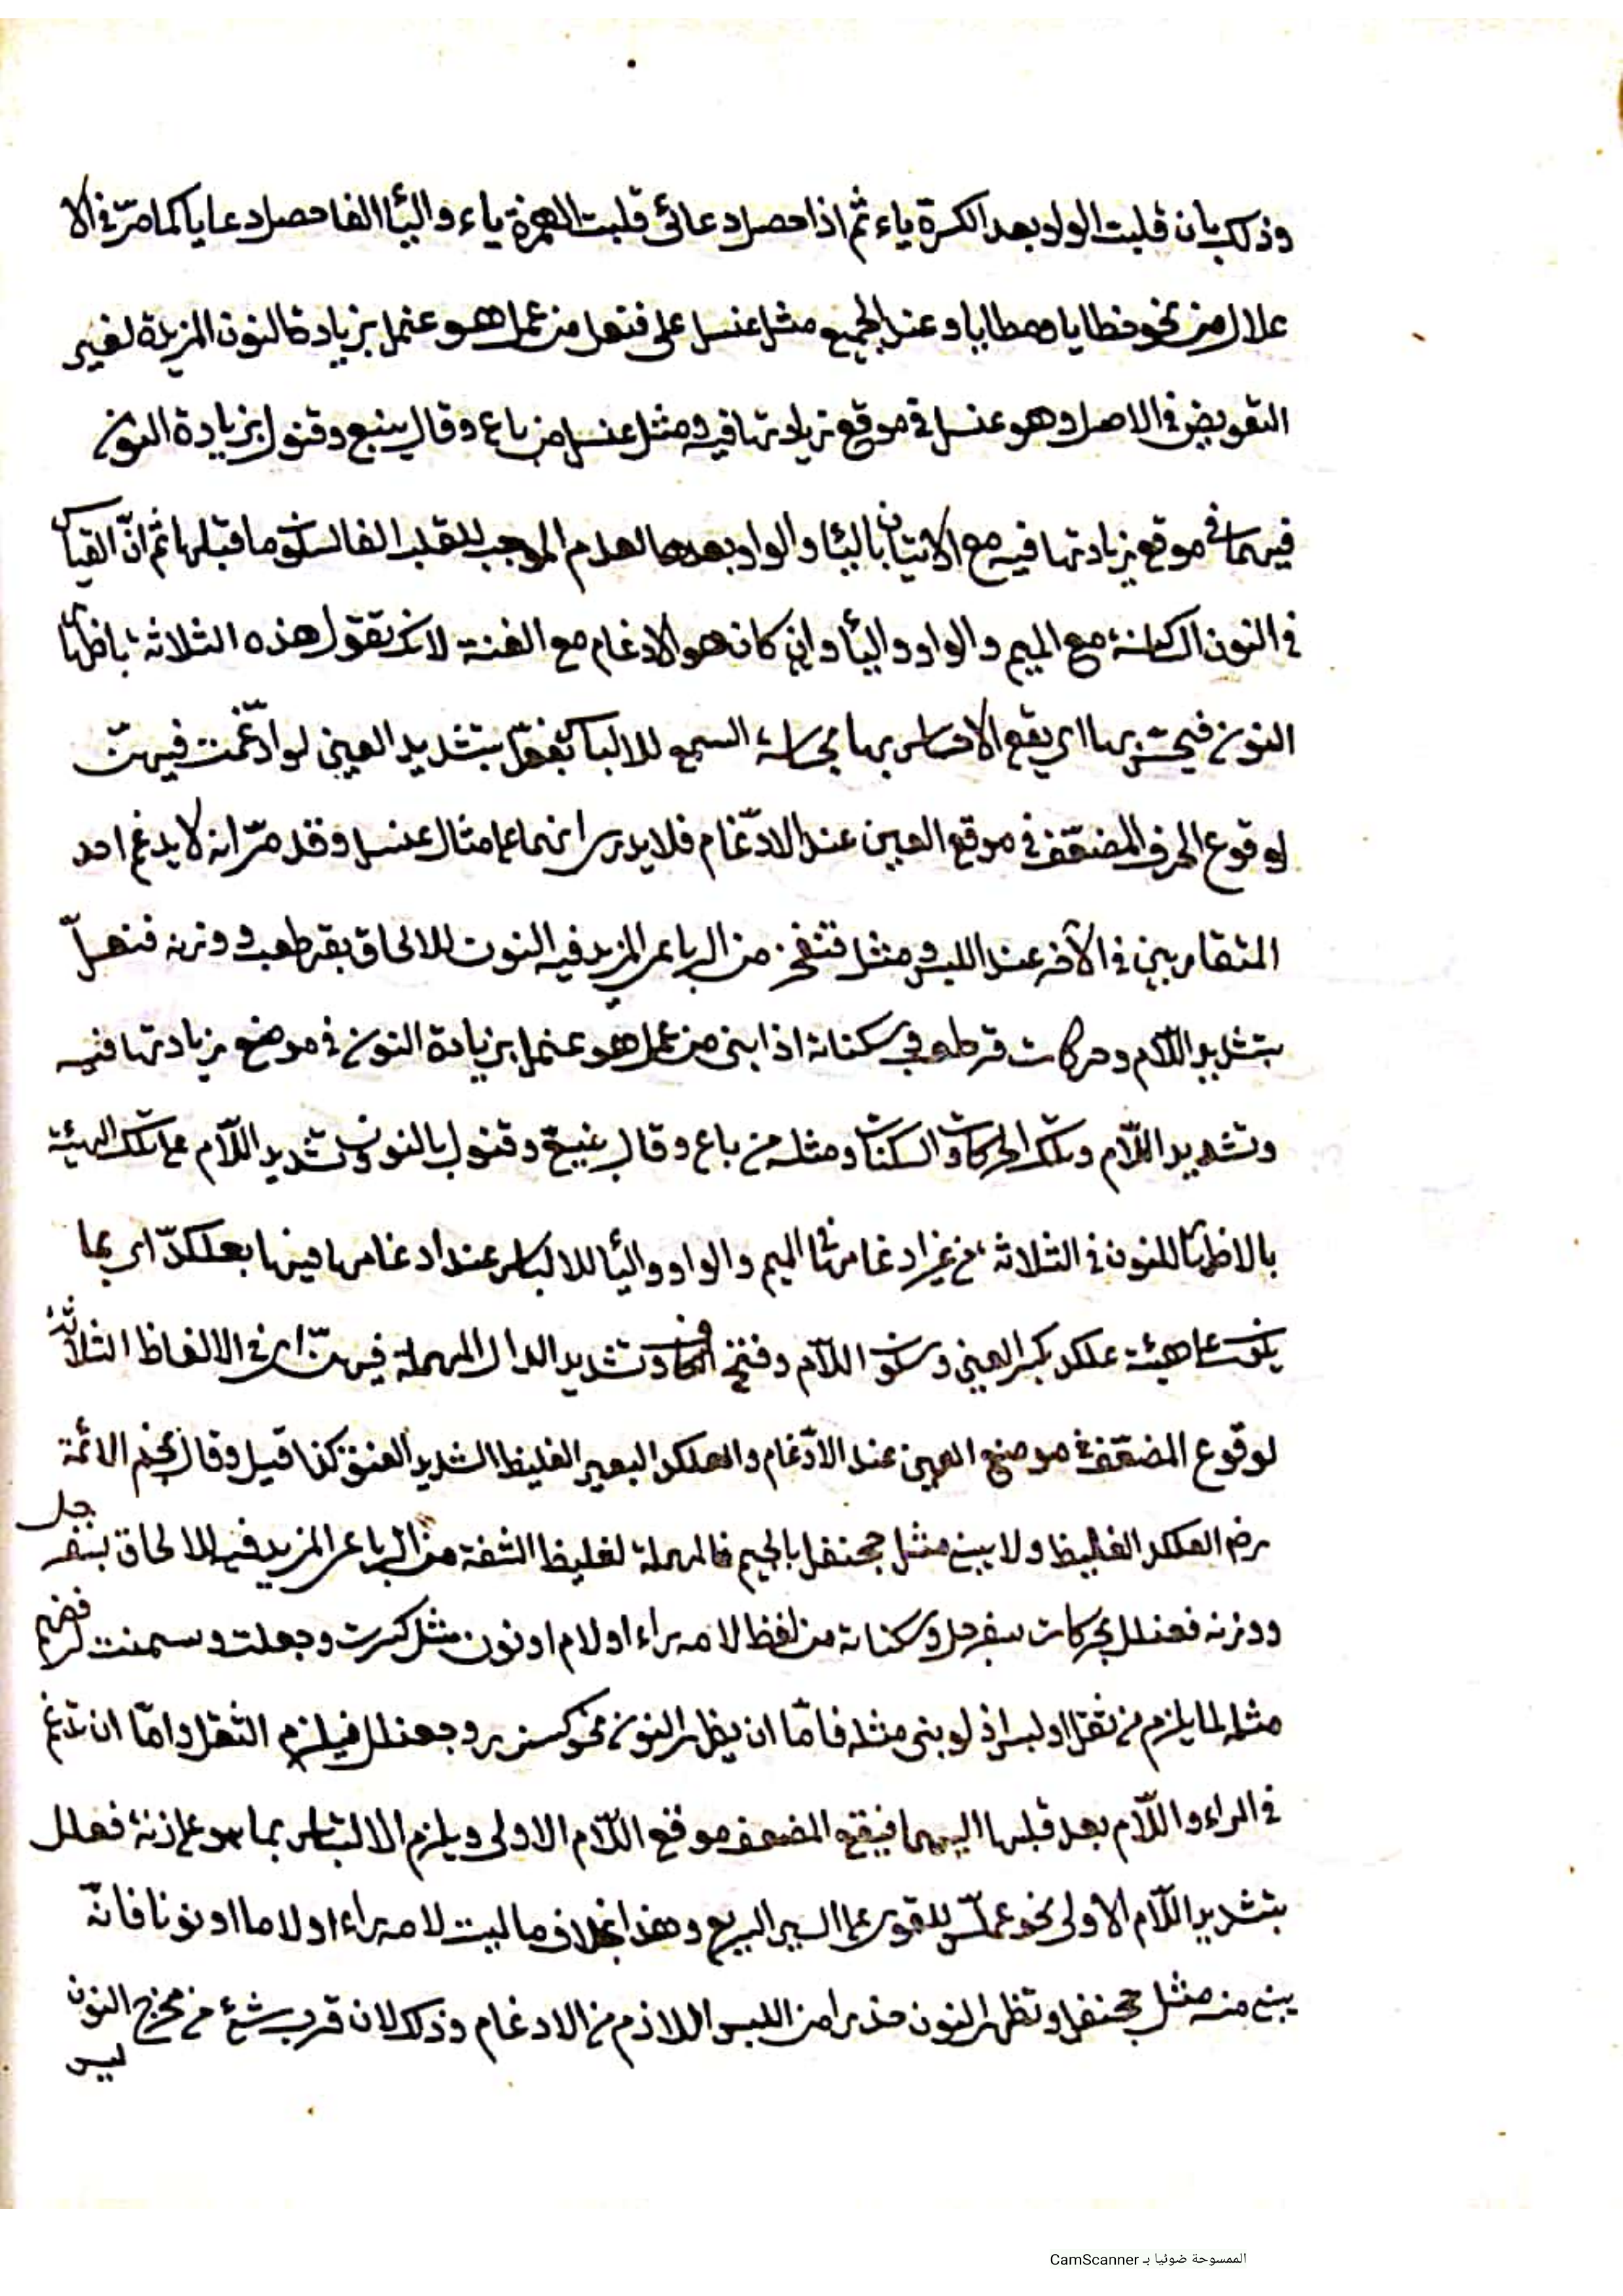 وذلك بان قلبت الواو بعد الكسرة ياء ثم اذا حصل دعائي قلبت الهمزة ياء والياء الفا حصل دعايا كما مرّ في الا
علال من نحو خطايا ومطايا وعند الجميع مثل عنسل على فنعل من عمل هو عنمل بزيادة النون المزيدة لغير
التعويض في الاصل وهو عنسل في موقع زيادتها فيه ومثل عنسل من باع وقال بنيع وقنول بزيادة النون
فيهما في موقع زيادتها فيه مع الاتيان بالياء والواو بعدها لعدم الموجب للقلب الفا لسكون ما قبلها ثم انّ القياس
في النون الساكنة مع الميم والواو والياء وان كان هو الادغام مع الغنة لكن تقول هذه الثلاثة باظهار
النون فيهن اي يقع بها السمع للالباس بفعّل بتشديد العين لو ادّغمت فيهنّ
لوقوع الحرف المضعّف في موقع العين عند الادّغام فلا يدرى انهما على مثال عنسل وقد مرّ انه لا يدغم احد
المتقاربين في الآخر عند اللبس ومثل قنفخر من الرباعي المزيد فيه النون للالحاق بقرطعب ووزنه فنعلّ
بتشديد اللّام وحركات قرطعب وسكناته اذا بنى من عمل هو عنمل بزيادة النون في موضع زيادتها فيه
وتشديد اللّام وتلك الحركات والسكنات ومثله من باع وقال بنيعّ وقنولّ بالنون وتشديد اللّام على تلك الهيئة
بالاظهار للنون في الثلاثة من غير ادغامها في الميم والواو والياء للالباس عند ادغامها فيها بعلكدّ اي بما
يكون على هيئة علكد بكسر العين وسكون اللّام وفتح الكاف وتشديد الدال المهملة فيهنّ اي في الالفاظ الثلاثة
لوقوع المضعّف في موضع العين عند الادّغام والعلكد البعير الغليظ الشديد العنق كذا قيل وقال نجم الائمة
رضي العلكد الغليظ ولا يبنى مثل جحنفل بالجيم فالمهملة لغليظ الشفة من الرباعي المزيد فيه للالحاق بسفرجل
ووزنه فعنلل بحركات سفرجل وسكناته من لفظ لامه راء او لام او نون مثل كسرت وجعلت وسمنت لرفضهم
مثله لما يلزم من ثقل او لبس اذ لو بنى مثله فامّا ان يظهر النون نحو كسنرر وجعنلل فيلزم الثقل وامّا ان تدغم
في الراء واللّام بعد قلبها اليهما فيقع المضعف موقع اللّام الاولى ويلزم الالتباس بما هو على زنة فعلل
بتشديد اللّام الاولى نحو عملّس للقوي على السير السريع وهذا بخلاف ما ليست لامه راء او لاما او نونا فانّه
يبنى منه مثل جحنفل وتظهر النون حذرا من اللبس اللازم من الادغام وذلك لان قرب شئ من مخرج النون
ليس
الممسوحة ضوئيا بـ CamScanner